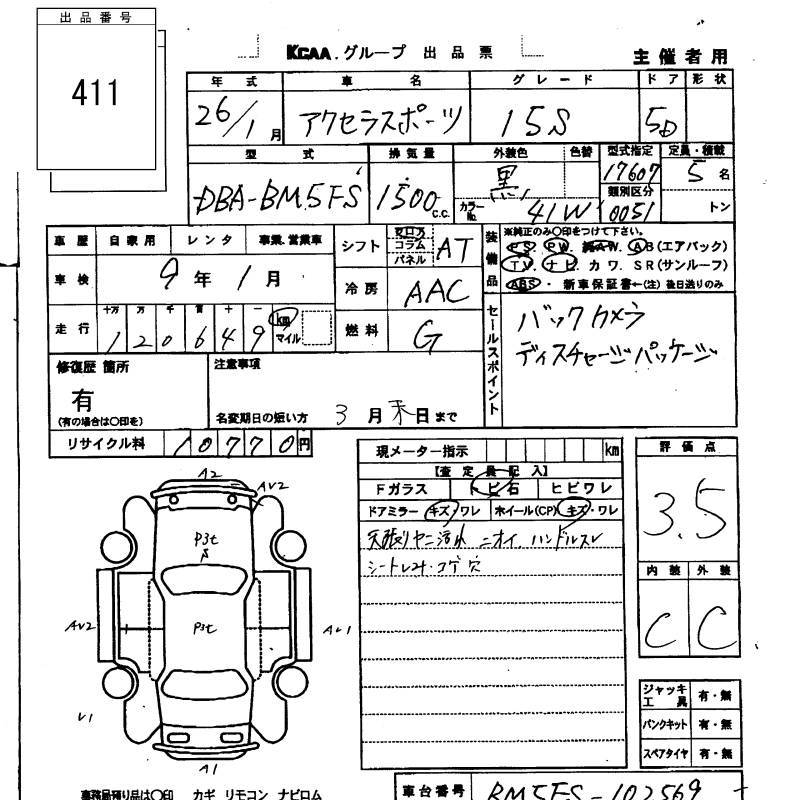 出品番号
411
KCAA.グループ 出品票
主催者用
年式 車名 グレード ドア 形状
26/1月 アクセラスポーツ 15S 5D
型式 排気量 外装色 色替 型式指定 定員・積載
DBA-BM5FS 1500c.c. 黒 カラーNo. 41W 17607 類別区分 0051 5名 トン
車歴 自家用 レンタ 事業、営業車
車検 9年1月
走行 十万 万 千 百 十 一
120649 km マイル
シフト フロア コラム パネル AT
冷房 AAC
燃料 G
装備品
※純正のみ○印をつけて下さい。
P.S. P.W. A.W. A.B(エアバック)
T.V. ナビ カワ. S.R(サンルーフ)
ABS・ 新車保証書←(注)後日送りのみ
セールスポイント
バックカメラ
ディスチャージパッケージ
修復歴 箇所
有
(有の場合は○印を)
注意事項
名変期日の短い方 3月末日まで
リサイクル料 10770円
現メーター指示 km
【査定員記入】
Fガラス トビ石 ヒビワレ
ドアミラー キズ・ワレ ホイール(CP) キズ・ワレ
天張りヤニ汚れ ニオイ. ハンドルスレ
シートシミ・コゲ穴
評価点
3.5
内装 外装
C C
ジャッキ工具 有・無
パンクキット 有・無
スペアタイヤ 有・無
A2
AV2
P3t
P3t
AV2
AV1
V1
A1
事務局預り品は○印 カギ リモコン ナビロム
車台番号 BM5FS-102569